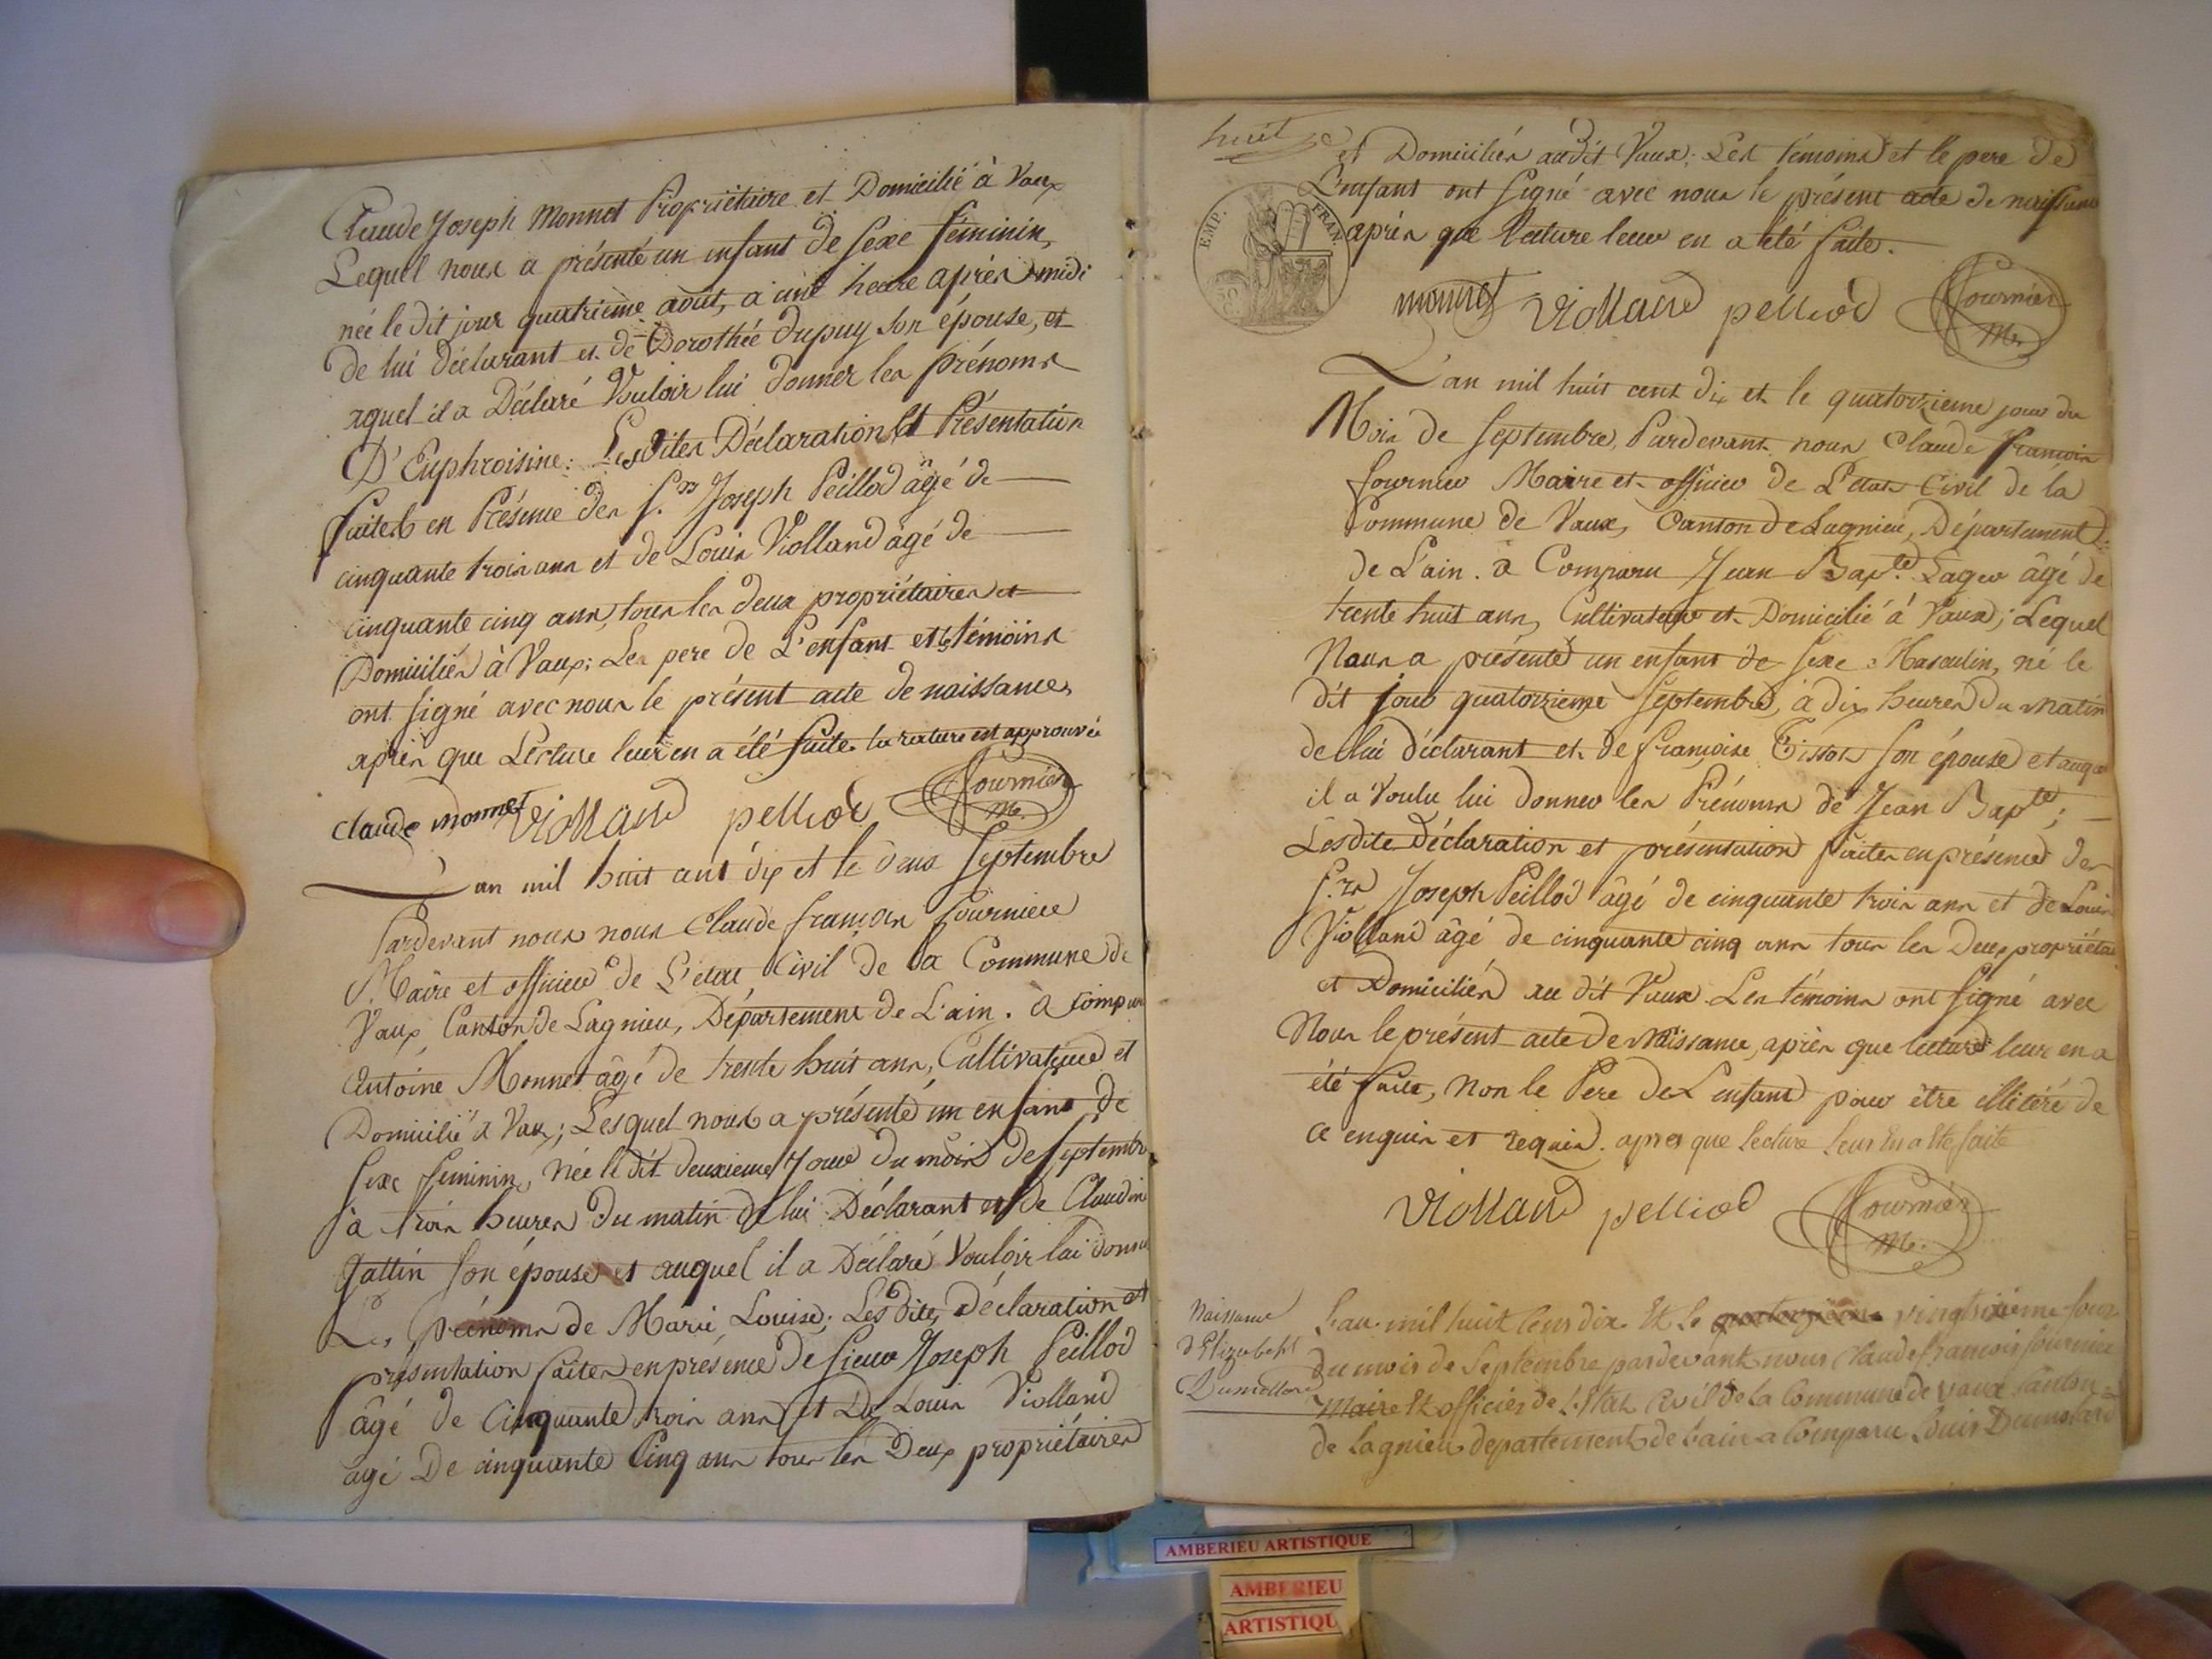 Claude Joseph Monnet Propriétaire et Domicilié à Vaux
Lequel nous a présenté un enfant de sexe féminin,
née le dit jour quatrième août, à une heure après midi
de lui déclarant et de Dorothée dupuy son épouse, et
aquel il a Déclaré Vouloir lui donner les prénoms
D'Euphroisine: Lesdites Déclaration et Présentation
faites en Présence des S.rs Joseph Peillod âgé de
cinquante trois ans et de Louis Violland âgé de
cinquante cinq ans, tous les deux propriétaires et
Domiciliés à Vaux; Le pere de L'enfant et les témoins
ont signé avec nous le présent acte de naissance,
après que Lecture leur en a été faite. la rature est approuvée
claude monnet Violland pelliod Fournier
M.e
L'an mil huit cent dix et le deux Septembre
Pardevant nous nous Claude françois fournier
Maire et officier de L'état Civil de la Commune de
Vaux, Canton de Lagnieu, Département de L'ain. a Comparu
Antoine Monnet âgé de trente huit ans, Cultivateur et
Domicilié à Vaux; Lesquel nous a présenté un enfant de
sexe feminin, née le dit deuxieme jour du mois de septembre
à trois heures du matin de lui Déclarant et de Claudine
Gattin son épouse et auquel il a Déclaré Vouloir lui donner
Les prénoms de Marie Louise; Lesdites déclaration et
présentation faites en présence de sieur Joseph Peillod
âgé de Cinquante trois ans et De Louis Violland
agé De cinquante Cinq ans tous les Deux propriétaires
huit
et Domiciliés audit Vaux; Les témoins et le pere de
L'enfant ont signé avec nous le présent acte de naissance
après que lecture leur en a été faite.
EMP. FRAN.
monnet Violland pelliod Fournier
M.e
L'an mil huit cent dix et le quatorzieme jour du
Mois de septembre, Pardevant nous Claude françois
fournier Maire et officier de L'état Civil de la
Commune de Vaux, Canton de Lagnieu, Département
de L'ain. a Comparu Jean Bap.te Lager âgé de
trente huit ans, Cultivateur et Domicilié à Vaux; Lequel
Nous a présenté un enfant de sexe Masculin, né le
dit jour quatorzieme septembre, à dix heures du matin
de lui déclarant et de françoise Tissot son épouse et auquel
il a Voulu lui donner les Prénoms de Jean Bap.te;
Lesdite déclaration et présentation faites en présence des
S.rs Joseph Peillod âgé de cinquante trois ans et de Louis
Violland âgé de cinquante cinq ans tous les Deux propriétai
et Domiciliés au dit Vaux. Les témoins ont signé avec
Nous le présent acte de Naissance, après que lecture leur en a
été faite, Non le Pere de L'enfant pour être illitéré de
ce enquis et requis. apres que lecture leur en a Eté faite
Violland pelliod Fournier
M.e
Naissance
d'Elizabeht
Dumollard
L'an mil huit Cens dix Et le quatorzieme vingtsixieme jour
du mois de Septembre pardevant nous Claude françois fournier
Maire Et officier de L'Etat Civil de la Commune de vaux Canton
de Lagnieu departement de Lain a Comparu Louis Dumolard
AMBERIEU ARTISTIQUE
AMBERIEU
ARTISTIQU